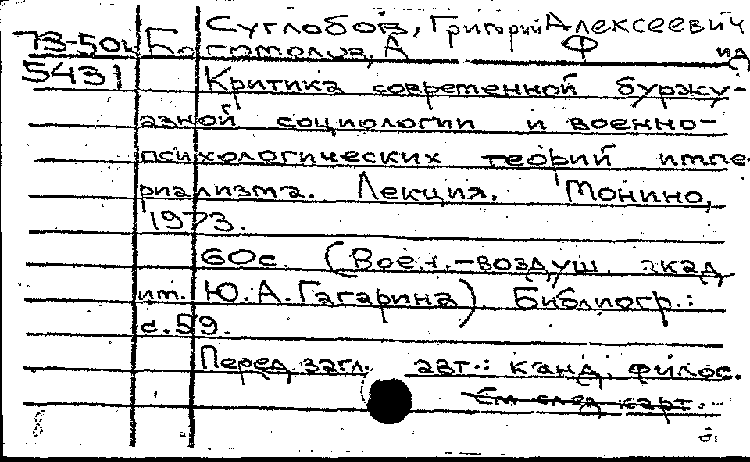 Суглобов, Григорий Алексеевич
73-50 Богомолов, А Ф ид
5431 Критика современной буржу-
азной социологии и военно-
психологических теорий импе-
риализма. Лекция. Монино,
1973.
60с. (Воен.-воздуш. акад.
им. Ю.А.Гагарина). Библиогр.:
с.59.
Перед загл. авт.: канд. филос.
См. след. карт.